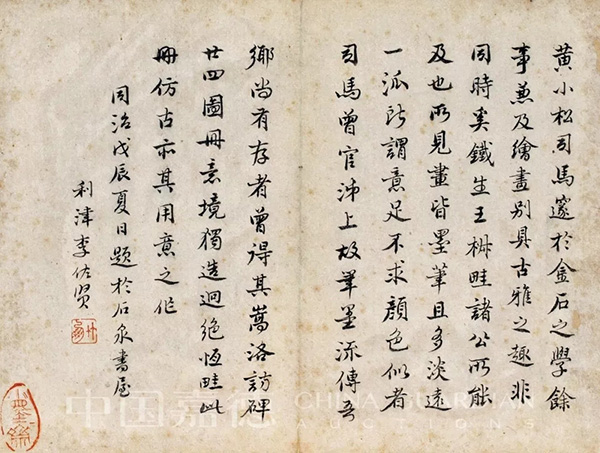 黄小松司馬邃於金石之學餘
事兼及繪畫別具古雅之趣非
同時奚鐵生王椒畦諸公所能
及也所見畫皆墨筆且多淡遠
一派所謂意足不求顏色似者
司馬曾官沛上故筆墨流傳吾
鄉尚有存者曾得其嵩洛訪碑
廿四圖冊意境獨造迥絕恆畦此
冊仿古亦其用意之作
同治戊辰夏日題於石泉書屋
利津李佐贤
中国嘉德
CHINA GUARDIAN
AUCTIONS